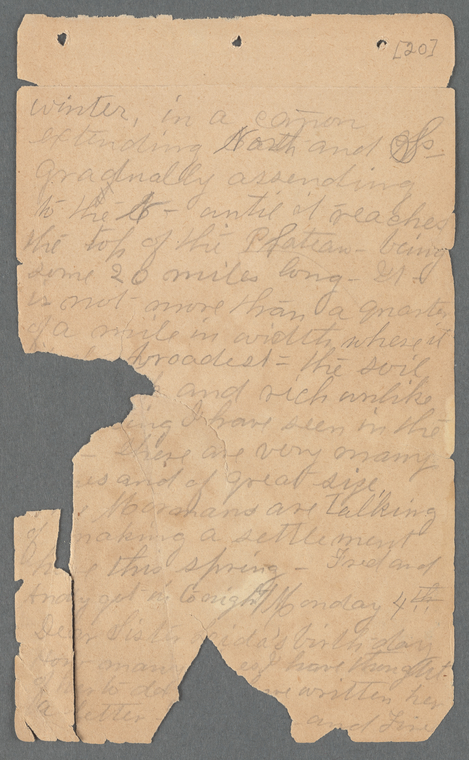 [20]
winter, in a cañon,
extending North and
gradually assending
to the N - until it reaches
the top of the Plateau - being
some 20 miles long - It
is not more than a quarter
of a mile in width where it
broadest - the soil
and rich unlike
ing I have seen in the
- there are very many
and of great size,
Mormans are talking
of making a settlement
here this spring - Fred and
Andy get in tonight Monday 4th
Dear Sister birth day
How many I have thought
of written her
a letter and Fire